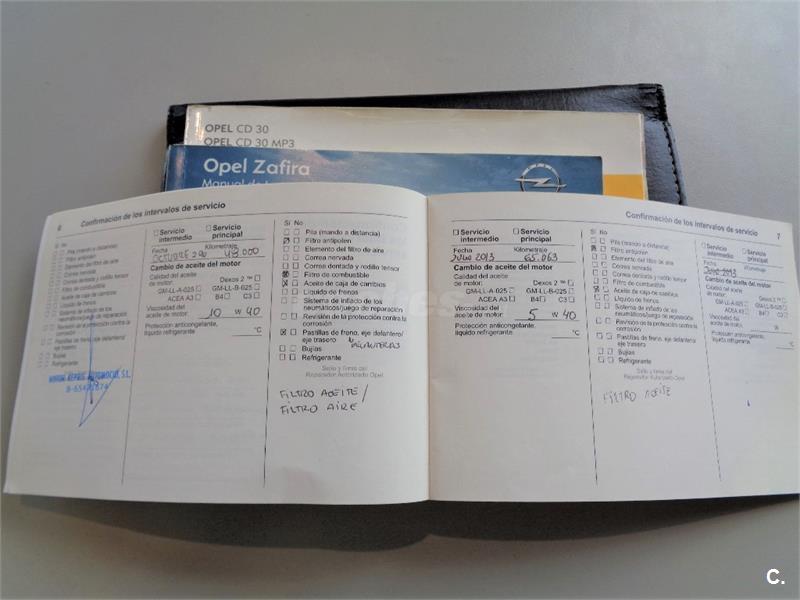 OPEL CD 30
OPEL CD 30 MP3
Opel Zafira
6 Confirmación de los intervalos de servicio
Sí No
Pila (mando a distancia)
Filtro antipolen
Elemento del filtro de aire
Correa nervada
Correa dentada y rodillo tensor
Filtro de combustible
Aceite de caja de cambios
Líquido de frenos
Sistema de inflado de los
neumáticos/juego de reparación
Revisión de la protección contra la
corrosión
Pastillas de freno, eje delantero/
eje trasero
Bujías
Refrigerante
Servicio
intermedio
Servicio
principal
Fecha
Kilometraje
OCTUBRE 49.000
Cambio de aceite del motor
Calidad del aceite
de motor:
Dexos 2 ™
GM-LL-A-025
GM-LL-B-025
ACEA A3
B4
C3
Viscosidad del
aceite de motor:
10 W 40
Protección anticongelante,
líquido refrigerante
°C
Sí No
Pila (mando a distancia)
Filtro antipolen
Elemento del filtro de aire
Correa nervada
Correa dentada y rodillo tensor
Filtro de combustible
Aceite de caja de cambios
Líquido de frenos
Sistema de inflado de los
neumáticos/juego de reparación
Revisión de la protección contra la
corrosión
Pastillas de freno, eje delantero/
eje trasero
Bujías
Refrigerante
Sello y firma del
Reparador Autorizado Opel
FILTRO ACEITE /
FILTRO AIRE
Confirmación de los intervalos de servicio 7
Servicio
intermedio
Servicio
principal
Fecha
Kilometraje
JULIO 2013 65.063
Cambio de aceite del motor
Calidad del aceite
de motor:
Dexos 2 ™
GM-LL-A-025
GM-LL-B-025
ACEA A3
B4
C3
Viscosidad del
aceite de motor:
5 W 40
Protección anticongelante,
líquido refrigerante
°C
Sí No
Pila (mando a distancia)
Filtro antipolen
Elemento del filtro de aire
Correa nervada
Correa dentada y rodillo tensor
Filtro de combustible
Aceite de caja de cambios
Líquido de frenos
Sistema de inflado de los
neumáticos/juego de reparación
Revisión de la protección contra la
corrosión
Pastillas de freno, eje delantero/
eje trasero
Bujías
Refrigerante
Sello y firma del
Reparador Autorizado Opel
FILTRO ACEITE
Servicio
intermedio
Servicio
principal
Fecha
Kilometraje
Cambio de aceite del motor
Calidad del aceite
de motor:
Dexos 2 ™
GM-LL-A-025
GM-LL-B-025
ACEA A3
B4
C3
Viscosidad del
aceite de motor:
W
Protección anticongelante,
líquido refrigerante
°C
C.